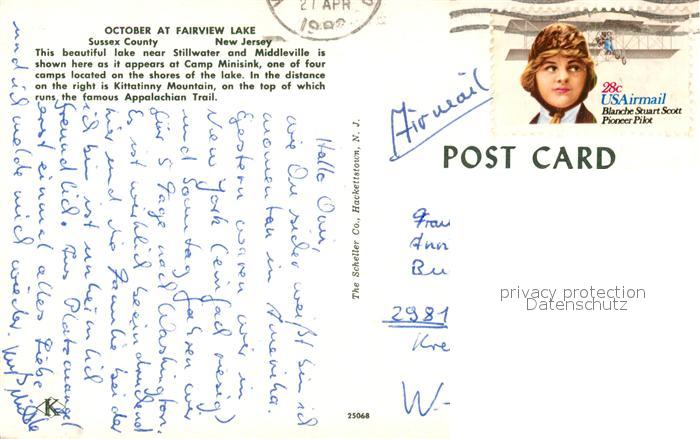 OCTOBER AT FAIRVIEW LAKE
Sussex County New Jersey
This beautiful lake near Stillwater and Middleville is
shown here as it appears at Camp Minisink, one of four
camps located on the shores of the lake. In the distance
on the right is Kittatinny Mountain, on the top of which
runs the famous Appalachian Trail.
27 APR
28c
USAirmail
Blanche Stuart Scott
Pioneer Pilot
Airmail
POST CARD
The Scheller Co., Hackettstown, N. J.
Hallo Omi,
wie Du sicher weißt bin ich
momentan in Amerika.
Gestern waren wir in
New York (einfach riesig)
und Sonntag fahren wir
für 5 Tage nach Washington.
Es ist wirklich beeindruckend
hier und die Familie bei der
ich bin ist unheimlich
freundlich. Aus Platzmangel
erst einmal alles Liebe
und ich melde mich wieder.
Frau
Ann
Bu
2981
Kre
W-
privacy protection
Datenschutz
K
25068